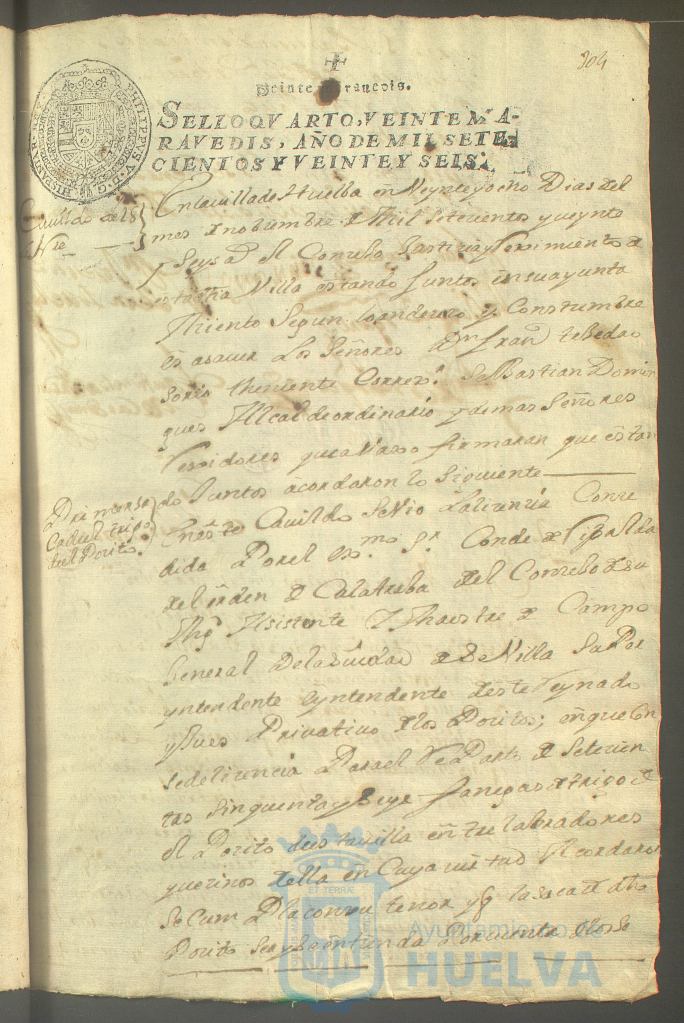 304
Veinte maravedis.
SELLO QVARTO, VEINTE MA-
RAVEDIS, AÑO DE MIL SETE-
CIENTOS Y VEINTE Y SEIS.
Cavildo de 28
En la villa de Huelba en Veynte y ocho Dias del
mes de nobiembre de Mil setecientos y veynte
y seys as el Consebo Justicia y Reximiento de
esta dha Villa estando Juntos en su ayunta
Miento Segun lo an de uso y Constumbre
es asaver Los Señores Dn Franco
sorio theniente Correxor Sebastian Domin
gues Alcalde ordinario y demas Señores
Rexidores que avaxo firmaran que estan
do Juntos acordaron lo siguiente
En este Cavildo se Vio la lizenzia Conse
dida Por el exmo Sr Conde de
del orden de Calatraba del Consebo de su
Mgd Asistente y Maestre de Campo
General de la Ciudad de Sevilla
yntendente de este Reynado
y Jues Privativo de los Positos; en que Con
sede lisencia Para el Reparto de Setecien
tas sinquenta y seys fanegas de trigo de
el Posito de esta villa entre labradores
y vesinos della en Cuya virtud Acordaron
Se Cumpla con su tenor y la saca de dho
Posito
Pri mer se
trigo
del Posito
PHILIPPVS V D G
HISPANIAR REX
Ayuntamiento de
HUELVA